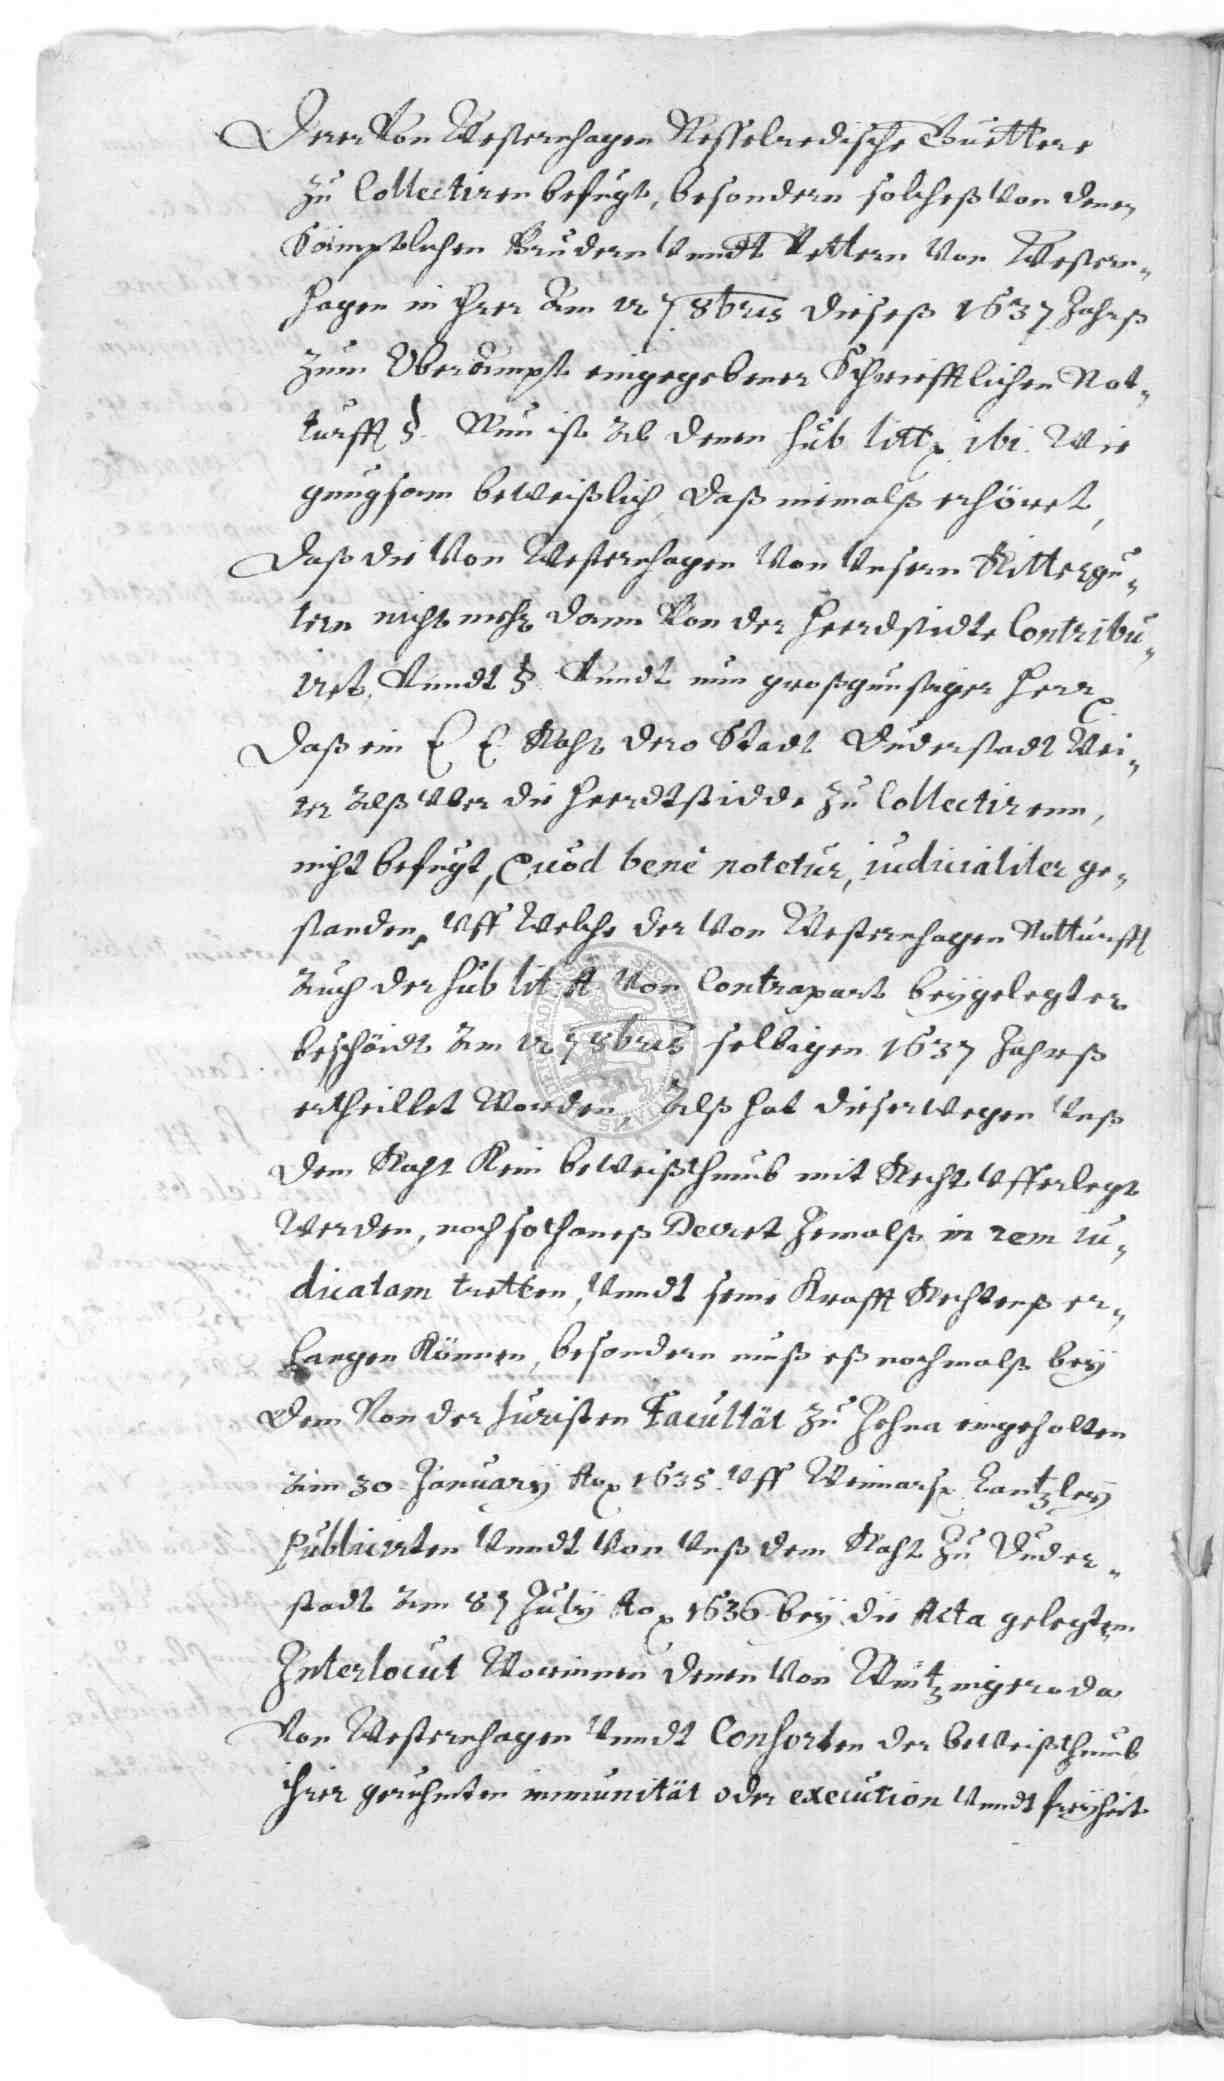 Derer Von Westernhagen Nesselredische Guettere
zu Collectiren befugt, besondern solcheß Von denen
Sämptlichen Brudern Vnndt Vettern Von Western„
hagen in ihrer Am 12 7 8bris dieseß 1637 Jahrß
zum Oberampt eingegebener Schriefftlichen Not„
turfft §. Nun ist Ab denen sub litt. ibi. Wie
gnugsam beweißlich, daß niemalß erhöret,
Daß die Von Westernhagen Von Vnsern Rittergu„
tern nicht mehr dann Von der heerdstidte Contribu„
iret, Vnndt § Vnndt nun großgunstiger Herr
Daß ein E E Raht dero Stadt Duderstadt Wei„
ter Alß Vber die heerdtstidde zu Collectirenn,
nicht befugt, Quod bene notetur, judicialiter ge„
standen, Vff Welche der Von Westernhagen Notturfft
Auch der sub lit A Von Contrapart beygelegter
bescheidt Am 12 7 8bris selbigen 1637 Jahrß
ertheillet Worden Alß hat dieserwegen Vnß
dem Raht Kein beweißthumb mit Recht Vfferlegt
Werden, noch sothaneß Decret Jemalß in rem iu„
dicatam tretten, Vnndt seine Krafft Rechtenß er„
langen Können, besondern muß eß nochmalß bey
dem Von der Juristen Facultät zu Jehna eingeholten
Am 30 January Ao 1635 Vff Weimars. Cantzley
Publicirten Vnndt Von Vnß dem Raht zu Duder„
stadt Am 8 7 July Ao 1636 bey die Acta gelegtem
Interlocut Worinnen denen Von Wintzingeroda
Von Westernhagen Vnndt Consorten der beweißthumb
ihrer geruhmten immunität oder execution Vnndt freyheit